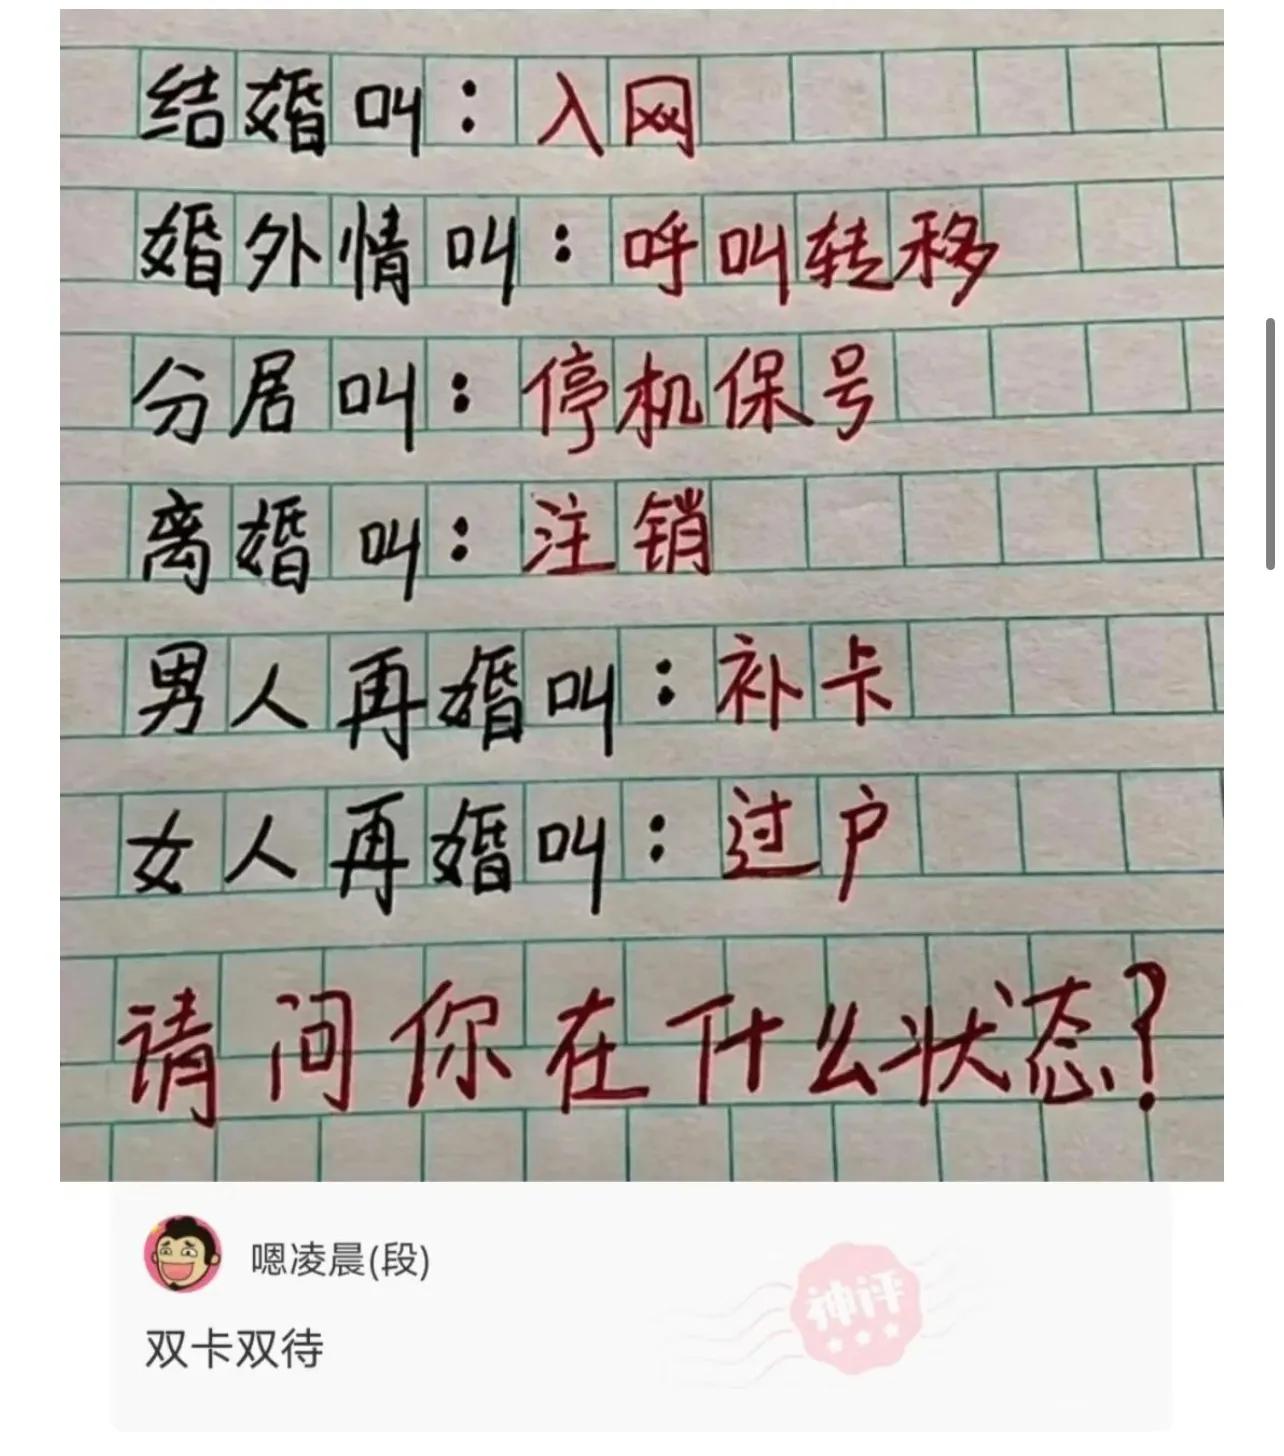 结婚叫：入网
婚外情叫：呼叫转移
分居叫：停机保号
离婚叫：注销
男人再婚叫：补卡
女人再婚叫：过户
请问你在什么状态？
嗯凌晨(段)
神评
双卡双待